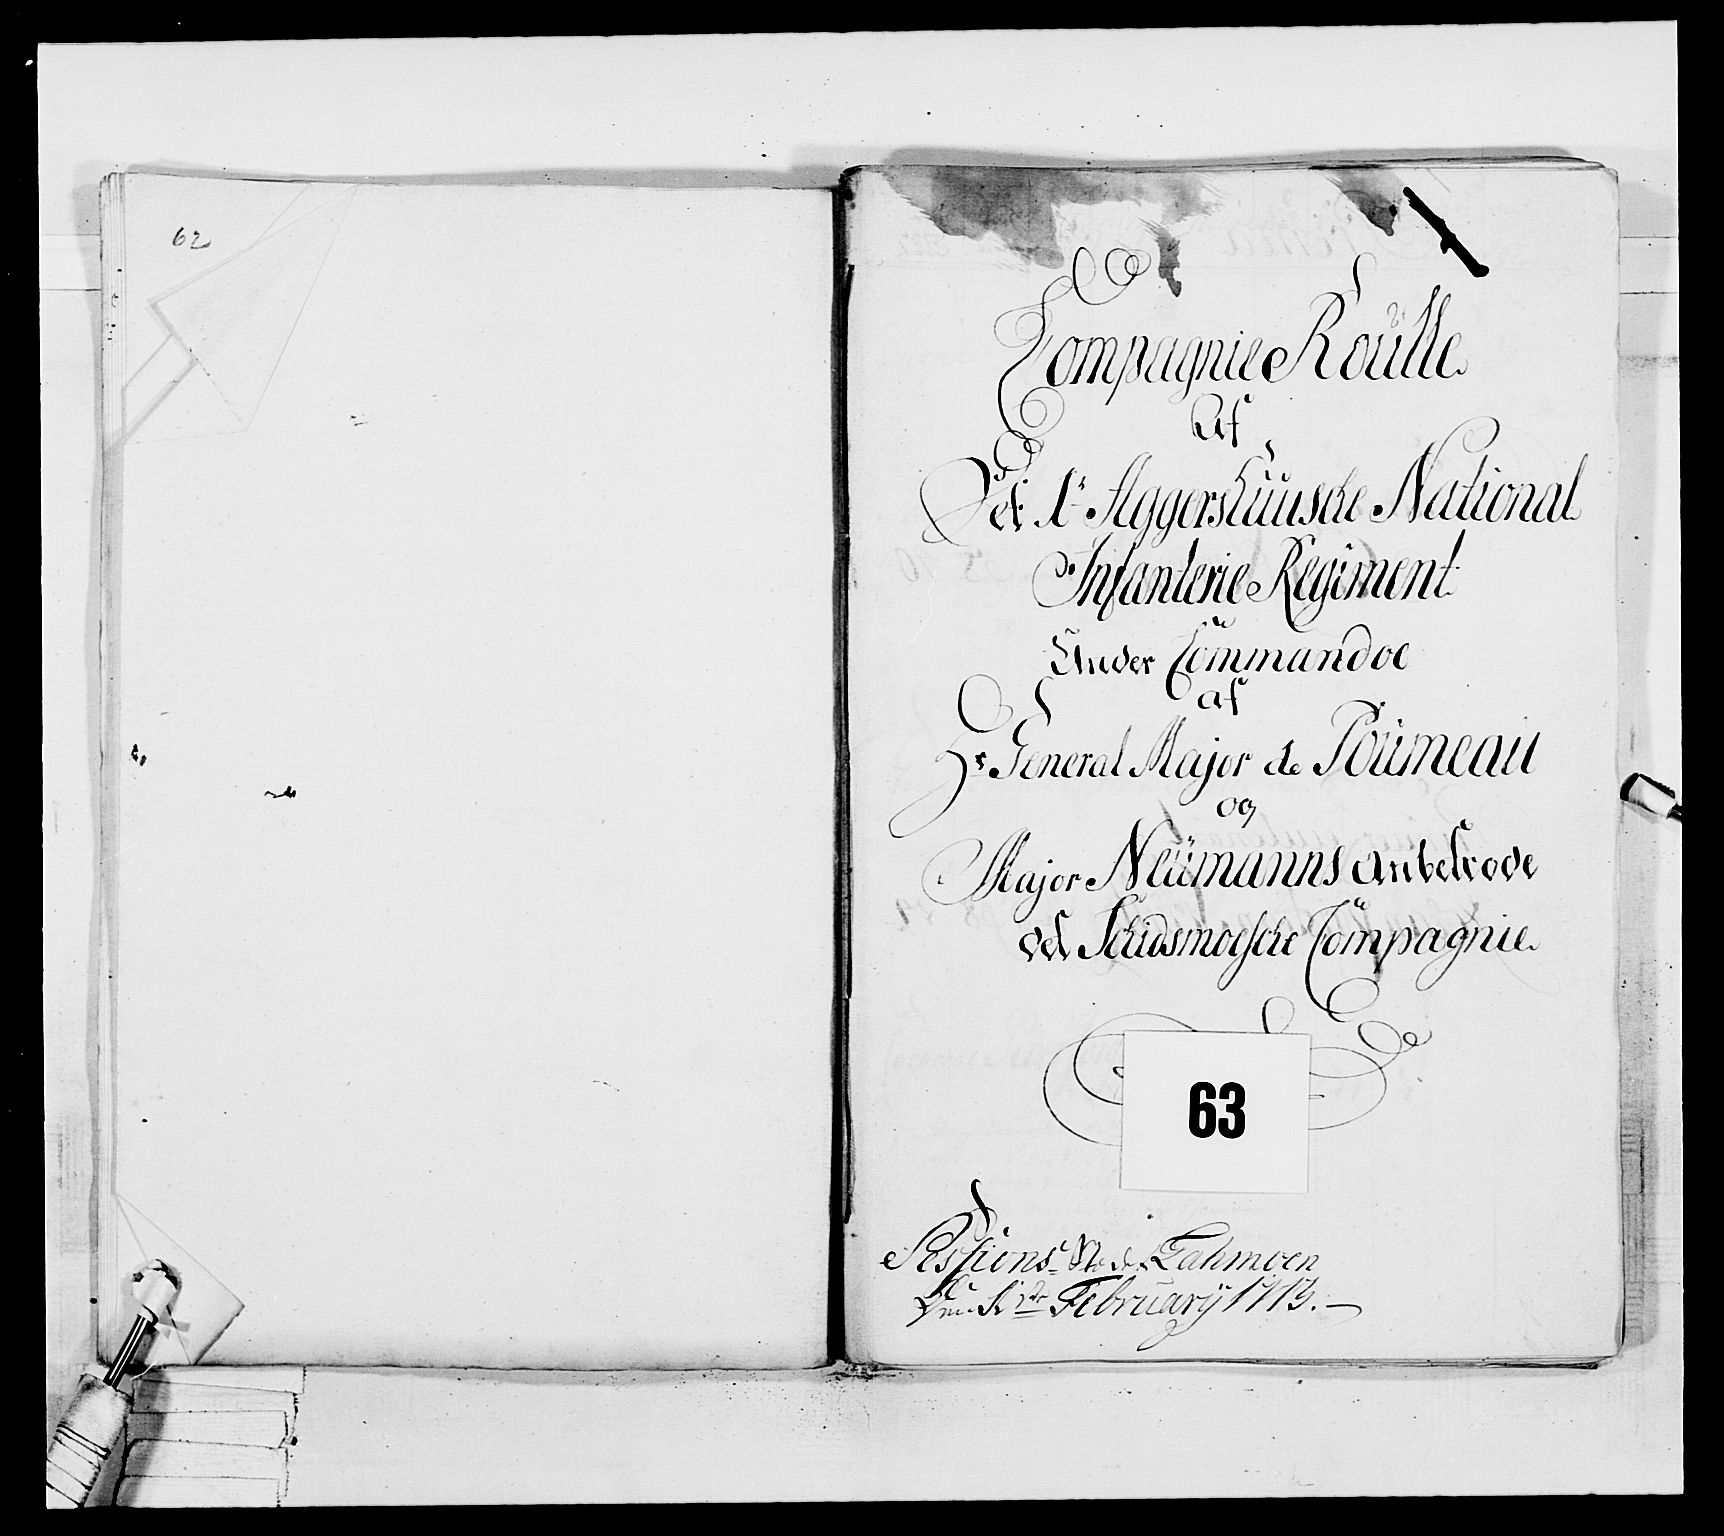 62
Compagnie Roülle
Af
Det 1te Aggershüusche National
Infanterie Regiment
Under Commandoe
af
Hr General Major de Poümeau
og
Major Neümanns anbetrode
vel Schidsmoesche Compagnie.
63
Sessions Stædet Lahmoen
Den February 1773.